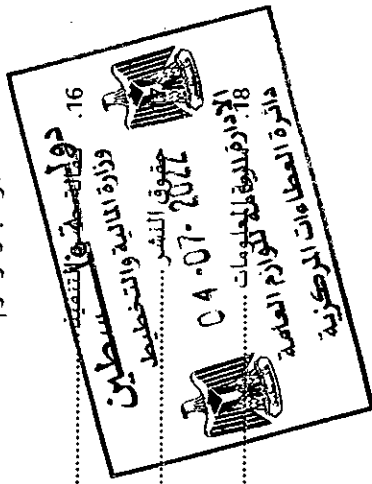 16. التنفيذ
دولة فلسطين
وزارة المالية والتخطيط
حقوق النشر
04-07-2022
18. المعلومات
الإدارة العامة للوازم العامة
دائرة العطاءات المركزية